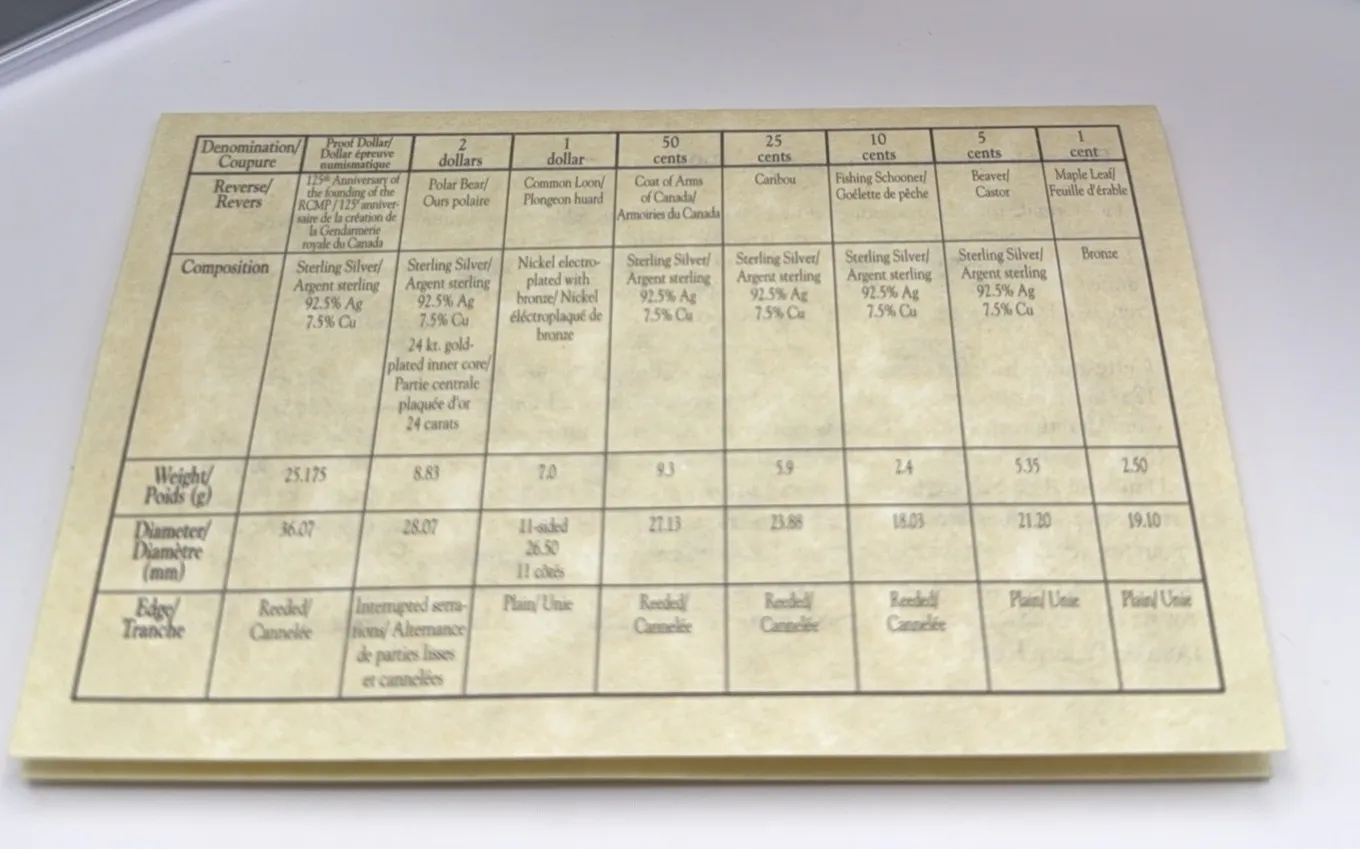 Denomination/
Coupure
Proof Dollar/
Dollar épreuve
numismatique
2
dollars
1
dollar
50
cents
25
cents
10
cents
5
cents
1
cent
Reverse/
Revers
125th Anniversary of
the founding of the
RCMP / 125e anniver-
saire de la création de
la Gendarmerie
royale du Canada
Polar Bear/
Ours polaire
Common Loon/
Plongeon huard
Coat of Arms
of Canada/
Armoiries du Canada
Caribou
Fishing Schooner/
Goélette de pêche
Beaver/
Castor
Maple Leaf/
Feuille d'érable
Composition
Sterling Silver/
Argent sterling
92.5% Ag
7.5% Cu
Sterling Silver/
Argent sterling
92.5% Ag
7.5% Cu
24 kt. gold-
plated inner core/
Partie centrale
plaquée d'or
24 carats
Nickel electro-
plated with
bronze/ Nickel
éléctroplaqué de
bronze
Sterling Silver/
Argent sterling
92.5% Ag
7.5% Cu
Sterling Silver/
Argent sterling
92.5% Ag
7.5% Cu
Sterling Silver/
Argent sterling
92.5% Ag
7.5% Cu
Sterling Silver/
Argent sterling
92.5% Ag
7.5% Cu
Bronze
Weight/
Poids (g)
25.175
8.83
7.0
9.3
5.9
2.4
5.35
2.50
Diameter/
Diamètre
(mm)
36.07
28.07
11-sided
26.50
11 côtés
27.13
23.88
18.03
21.20
19.10
Edge/
Tranche
Reeded/
Cannelée
Interrupted serra-
tions/ Alternance
de parties lisses
et cannelées
Plain/ Unie
Reeded/
Cannelée
Reeded/
Cannelée
Reeded/
Cannelée
Plain/ Unie
Plain/ Unie